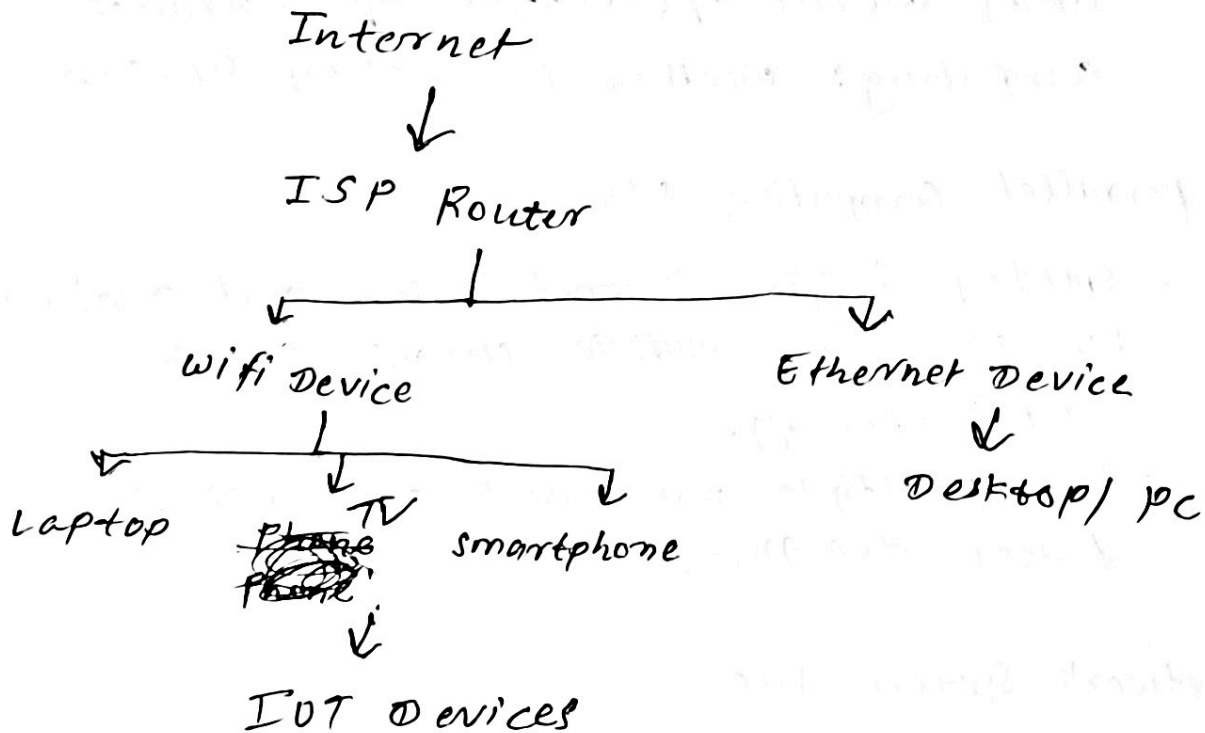 Internet
ISP Router
Wifi Device
Ethernet Device
Laptop
TV
smartphone
Desktop/ PC
IOT Devices